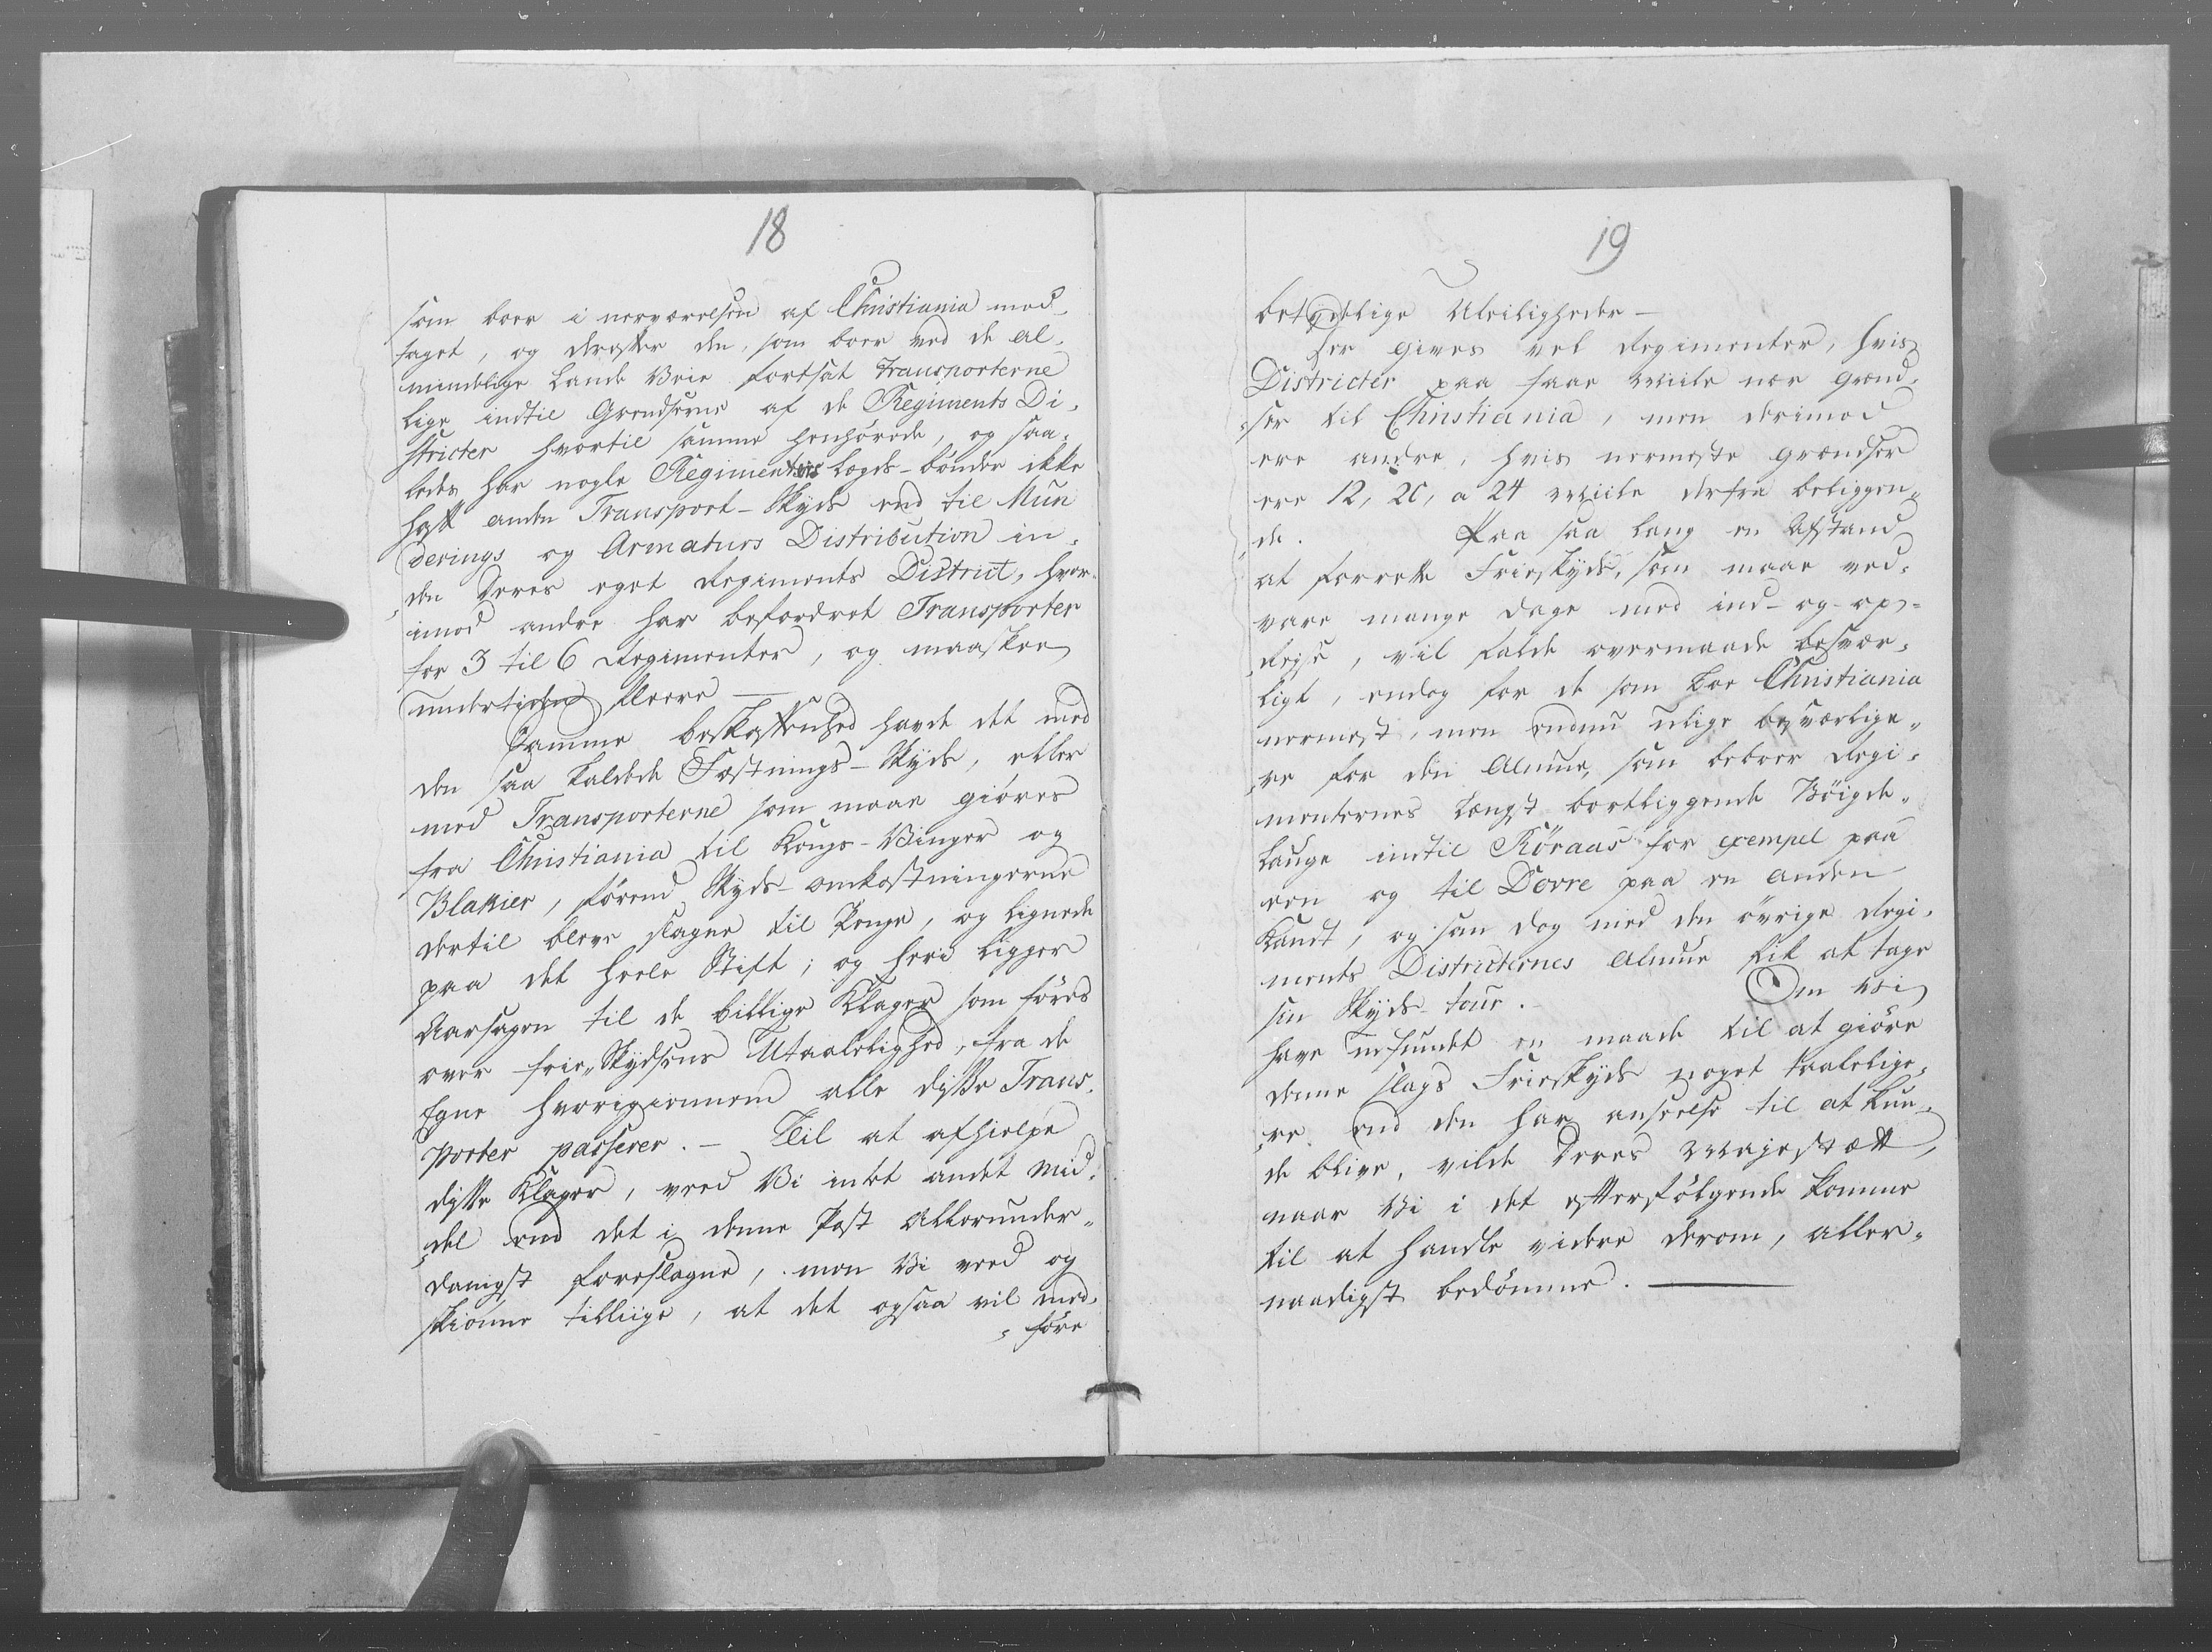 18
som boer i nerværelsen af Christiania med-
taget, og derefter den, som boer ved de al-
mindelige Lande Veie fortsat Transporterne
lige indtil Grendserne af de Regiments Di-
stricter hvortil samme henhörede, og saa-
ledes har nogle Regimenters Legds-bönder ikke
haft anden Transport-Skyds end til Mun
derings og Armaturs Distribution in-
den Deres eget Regiments District, hvor-
imod andre har befordret Transporter
for 3 til 6 Regimenter, og maaskee
undertiden fleere —
Samme beskaffenhed havde det med
den saa kaldede Fæstnings-Skyds, eller
med Transporterne som maae giöres
fra Christiania til Kongs-Vinger og
Blakier, förend Skyds-omkostningerne
dertil bleve slagne til Penge, og lignede
paa det heele Stift; og heri ligger
Aarsagen til de billige Klager som föres
over frie Skydsens Utaalelighed, fra de
Egne hvorigiennem alle disse Trans-
porter passerer. — Til at afhielpe
disse Klager, veed Vi intet andet Mid-
del end det i denne Post Allerunder-
danigst foreslagne, men Vi veed og
skiönne tilliige, at det ogsaa vil med-
före
19
betydelige Uleiligheder —
Her gives vel Regimenter, hvis
Districter paa faae Miile nær grænd-
ser til Christiania, men derimod
ere andre, hvis nermeste Grændser
ere 12, 20, a 24 Miile derfra beliggen-
de. Paa saa lang en Afstand
at forrette Frieskyds, som maae ved-
vare mange Dage med ind- og op-
Rejse, vil falde overmaade besvær-
ligt, endog for de som boe Christiania
nermest, men endnu ulige besværlige-
re for den Almue, som beboer Regi-
menternes længst bortliggende Böigde-
Lauge indtil Röraas for exempel paa
een og til Dovre paa en anden
Kandt, og saa dog med den övrige Regi-
ments Districternes Almue fik at tage
sin Skyds-tour. Om Vi
have udfundet en maade til at giöre
denne slags Frieskyds noget taalelige-
re end den har anseelse til at kun-
de blive, vilde Deres Majestætt,
naar Vi i det efterfölgende komme
til at handle videre derom, aller-
naadigst bedömme. —